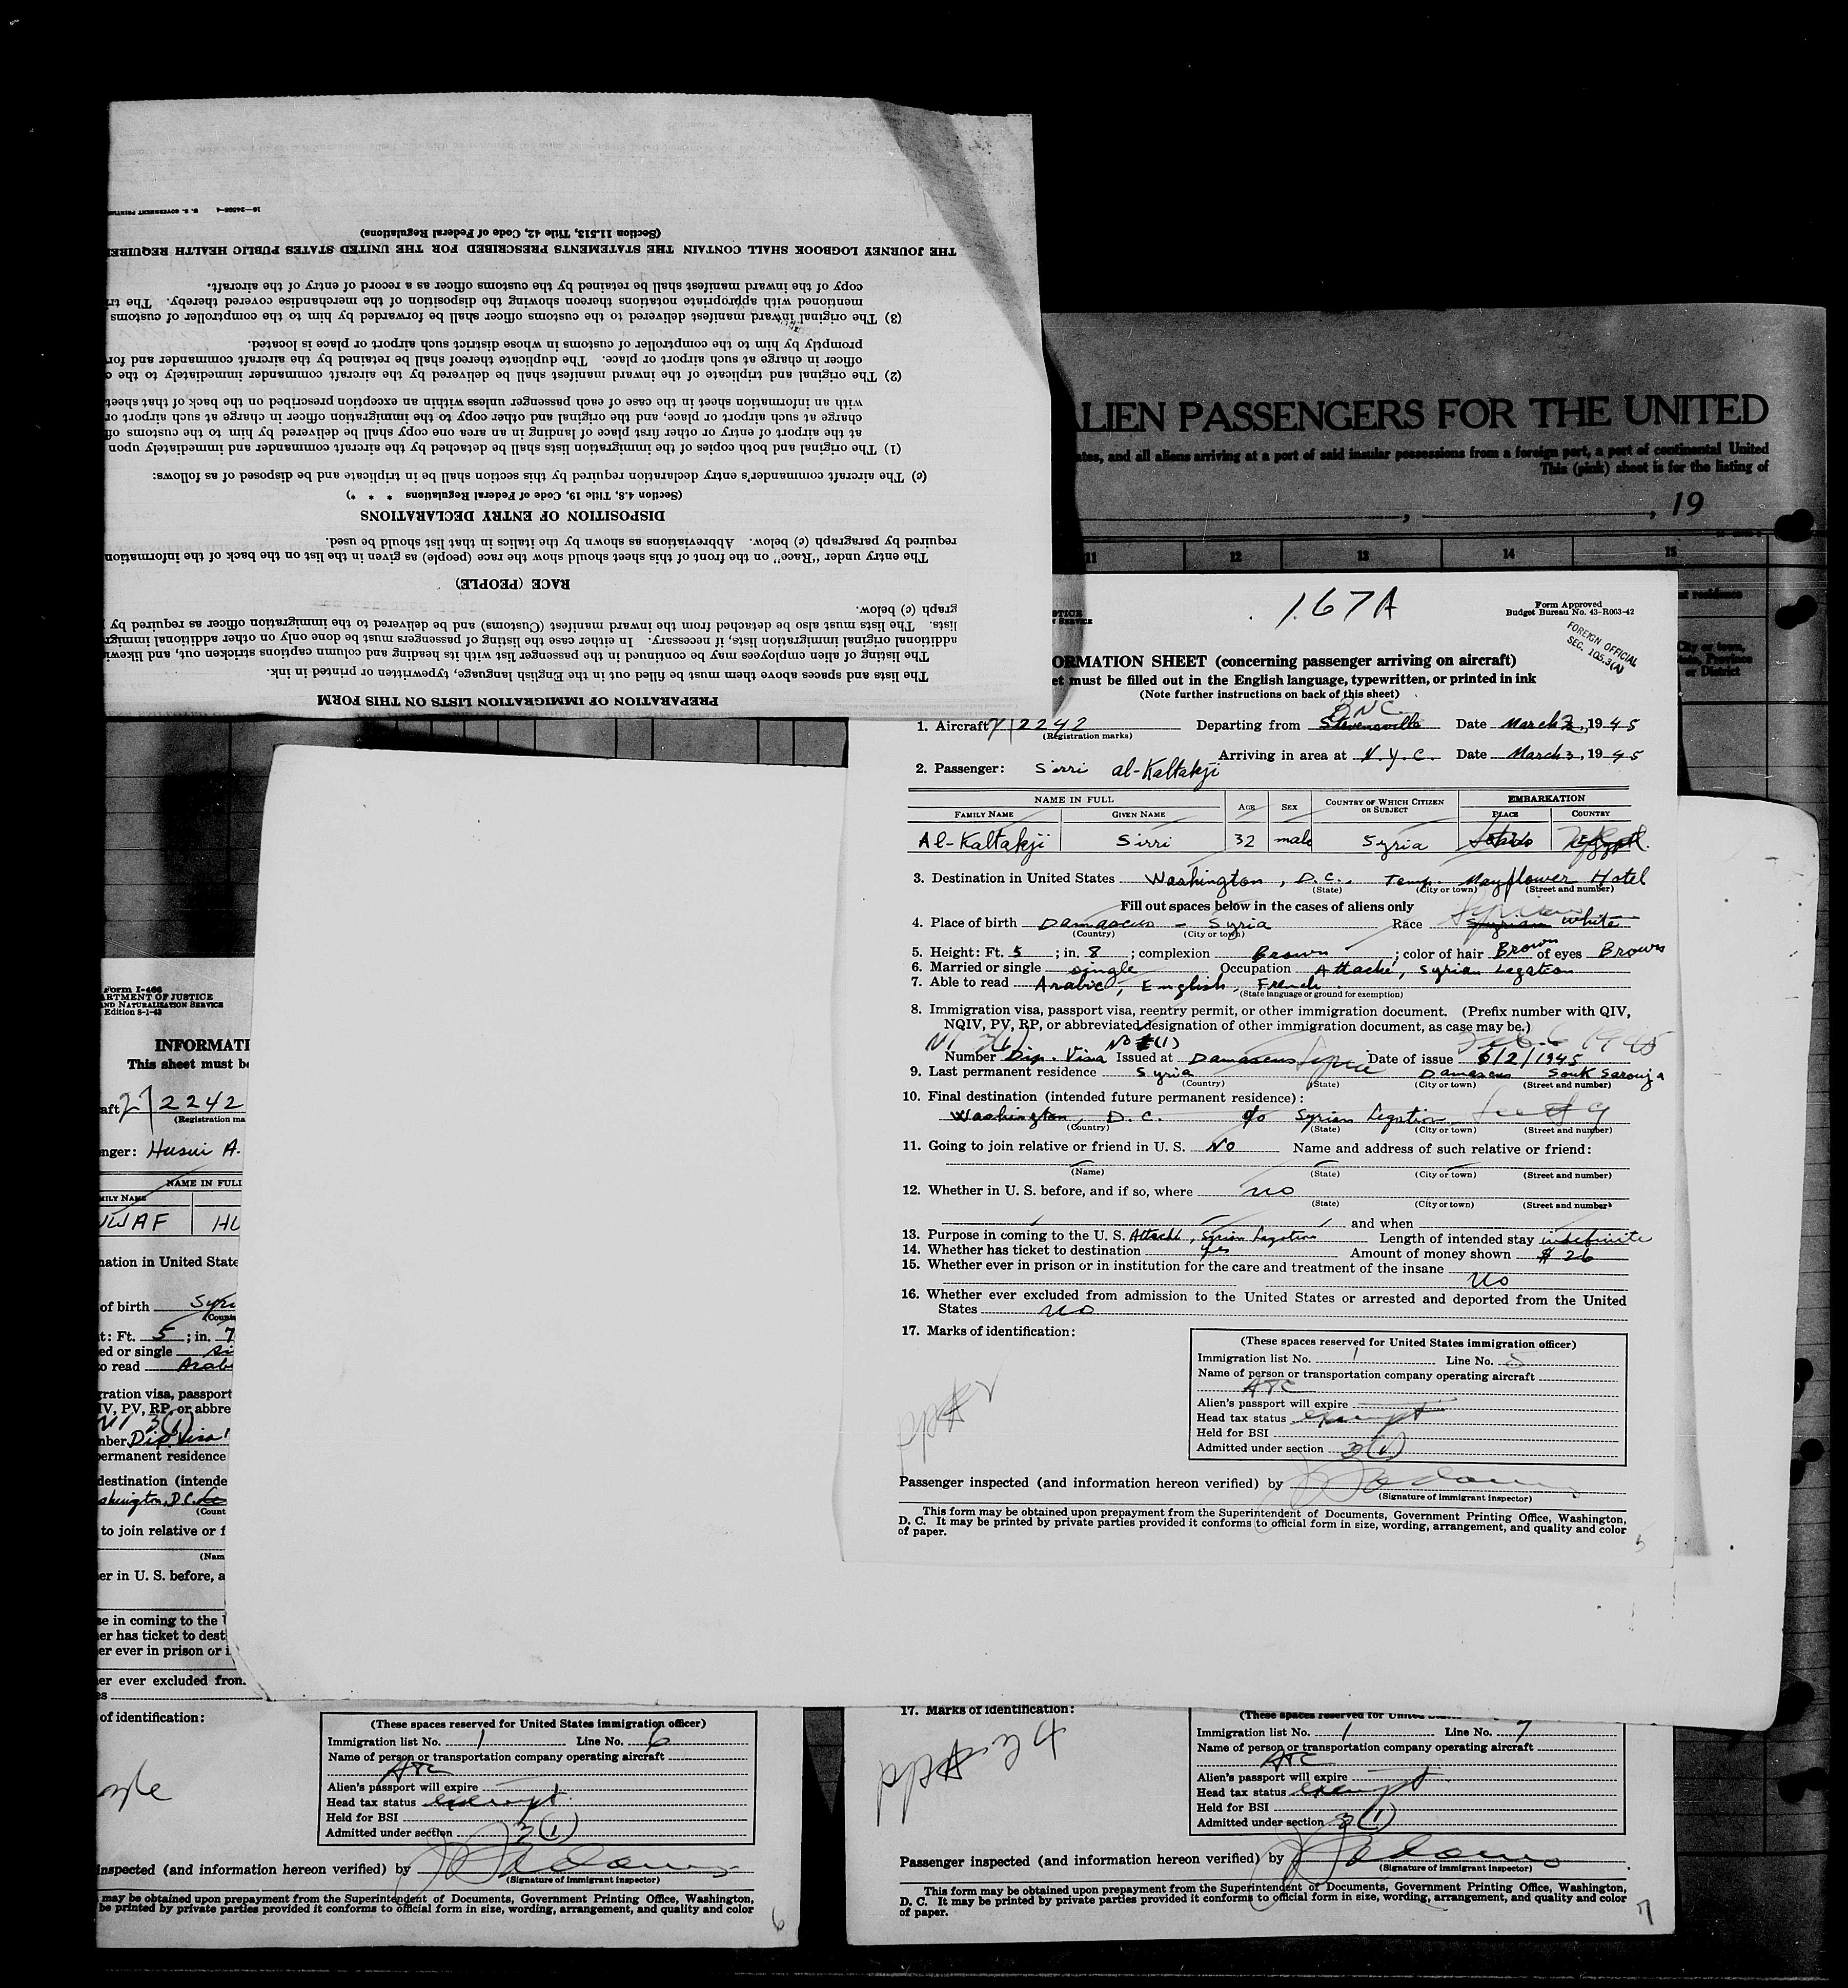 PREPARATION OF IMMIGRATION LISTS ON THIS FORM
The lists and spaces above them must be filled out in the English language, typewritten or printed in ink.
The listing of alien employees may be continued in the passenger list with its heading and column captions stricken out, and likewi
additional original immigration lists, if necessary. In either case the listing of passengers must be done only on other additional immigr
lists. The lists must also be detached from the inward manifest (Customs) and be delivered to the immigration officer as required by
graph (c) below.
RACE (PEOPLE)
The entry under "Race" on the front of this sheet should show the race (people) as given in the list on the back of the information
required by paragraph (c) below. Abbreviations as shown by the italics in that list should be used.
DISPOSITION OF ENTRY DECLARATIONS
(Section 4.8, Title 19, Code of Federal Regulations * * *)
(c) The aircraft commander's entry declaration required by this section shall be in triplicate and be disposed of as follows:
(1) The original and both copies of the immigration lists shall be detached by the aircraft commander and immediately upon
at the airport of entry or other first place of landing in an area one copy shall be delivered by him to the customs off
charge at such airport or place, and the original and other copy to the immigration officer in charge at such airport or
with an information sheet in the case of each passenger unless within an exception prescribed on the back of that sheet
(2) The original and triplicate of the inward manifest shall be delivered by the aircraft commander immediately to the c
officer in charge at such airport or place. The duplicate thereof shall be retained by the aircraft commander and for
promptly by him to the comptroller of customs in whose district such airport or place is located.
(3) The original inward manifest delivered to the customs officer shall be forwarded by him to the comptroller of customs
mentioned with appropriate notations thereon showing the disposition of the merchandise covered thereby. The tri
copy of the inward manifest shall be retained by the customs officer as a record of entry of the aircraft.
THE JOURNEY LOGBOOK SHALL CONTAIN THE STATEMENTS PRESCRIBED FOR THE UNITED STATES PUBLIC HEALTH REQUIRE
(Section 11.513, Title 42, Code of Federal Regulations)
16—24508-4 U. S. GOVERNMENT PRINTIN
ALIEN PASSENGERS FOR THE UNITED
ates, and all aliens arriving at a port of said insular possessions from a foreign port, a port of continental United
This (pink) sheet is for the listing of
, 19
11 12 13 14 15
City or town,
or District
167A
Form Approved
Budget Bureau No. 43-R063-42
FOREIGN OFFICIAL
SEC. 105.3(A)
ORMATION SHEET (concerning passenger arriving on aircraft)
et must be filled out in the English language, typewritten, or printed in ink
(Note further instructions on back of this sheet)
BNC
1. Aircraft 2242 Departing from Stevensville Date March 3, 1945
(Registration marks)
Arriving in area at N.Y.C. Date March 3, 1945
2. Passenger: Sirri al-Kaltakji
NAME IN FULL AGE SEX COUNTRY OF WHICH CITIZEN OR SUBJECT EMBARKATION
FAMILY NAME GIVEN NAME PLACE COUNTRY
Al-Kaltakji Sirri 32 male Syria Egypt
3. Destination in United States Washington, D.C. Temp. Mayflower Hotel
(State) (City or town) (Street and number)
Fill out spaces below in the cases of aliens only
Syrian
4. Place of birth Damascus - Syria Race Syrian white
(Country) (City or town)
5. Height: Ft. 5; in. 8; complexion Brown; color of hair Brown of eyes Brown
6. Married or single single Occupation Attaché, Syrian Legation
7. Able to read Arabic, English, French.
(State language or ground for exemption)
8. Immigration visa, passport visa, reentry permit, or other immigration document. (Prefix number with QIV,
NQIV, PV, RP, or abbreviated designation of other immigration document, as case may be.)
NI 3(1) No (1) Feb. 6 1945
Number Dip. Visa Issued at Damascus Syria Date of issue 6/2/1945
9. Last permanent residence Syria Damascus Souk Sarouja
(Country) (State) (City or town) (Street and number)
10. Final destination (intended future permanent residence):
Washington, D.C. c/o Syrian Legation See # 9
(Country) (State) (City or town) (Street and number)
11. Going to join relative or friend in U. S. NO Name and address of such relative or friend:
(Name) (State) (City or town) (Street and number)
12. Whether in U. S. before, and if so, where no
(State) (City or town) (Street and number)
and when
13. Purpose in coming to the U. S. Attaché, Syrian Legation Length of intended stay indefinite
14. Whether has ticket to destination yes Amount of money shown $ 26
15. Whether ever in prison or in institution for the care and treatment of the insane no
16. Whether ever excluded from admission to the United States or arrested and deported from the United
States no
17. Marks of identification:
(These spaces reserved for United States immigration officer)
Immigration list No. 1 Line No. 5
Name of person or transportation company operating aircraft
ATC
Alien's passport will expire
Head tax status exempt
Held for BSI
Admitted under section 3(1)
Passenger inspected (and information hereon verified) by J Adams
(Signature of immigrant inspector)
This form may be obtained upon prepayment from the Superintendent of Documents, Government Printing Office, Washington,
D. C. It may be printed by private parties provided it conforms to official form in size, wording, arrangement, and quality and color
of paper.
5
Form I-466
ARTMENT OF JUSTICE
AND NATURALIZATION SERVICE
Edition 8-1-43
INFORMATI
This sheet must be
aft 2242
(Registration ma
nger: Husni A.
NAME IN FULL
MILY NAME
WAF HU
nation in United State
of birth Syri
(Count
t: Ft. 5; in. 7
ed or single si
o read Arab
gration visa, passport
IV, PV, RP, or abbre
NI 3(1)
mber Dip. Visa
ermanent residence
destination (intende
shington, D.C.
(Count
to join relative or f
(Nam
er in U. S. before, a
se in coming to the U
er has ticket to dest
er ever in prison or i
er ever excluded from
es
of identification:
(These spaces reserved for United States immigration officer)
Immigration list No. 1 Line No. 6
Name of person or transportation company operating aircraft
ATC
Alien's passport will expire
Head tax status exempt
Held for BSI
Admitted under section 3(1)
inspected (and information hereon verified) by J Adams
(Signature of immigrant inspector)
may be obtained upon prepayment from the Superintendent of Documents, Government Printing Office, Washington,
be printed by private parties provided it conforms to official form in size, wording, arrangement, and quality and color
6
17. Marks of identification:
(These spaces reserved for United
Immigration list No. 1 Line No. 7
Name of person or transportation company operating aircraft
ATC
Alien's passport will expire
Head tax status exempt
Held for BSI
Admitted under section 3(1)
Passenger inspected (and information hereon verified) by J Adams
(Signature of immigrant inspector)
This form may be obtained upon prepayment from the Superintendent of Documents, Government Printing Office, Washington,
D. C. It may be printed by private parties provided it conforms to official form in size, wording, arrangement, and quality and color
of paper.
7